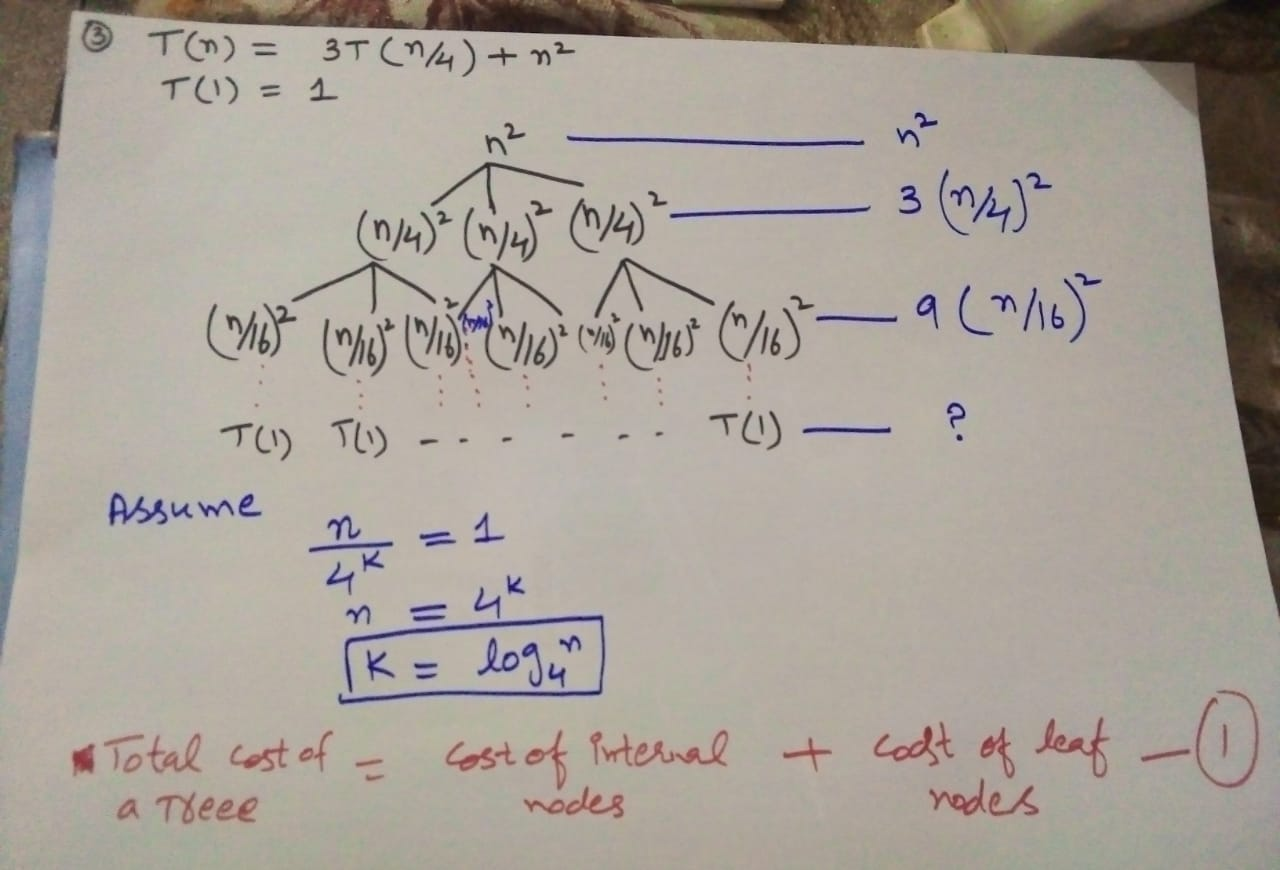 ③ T(n) = 3T(n/4) + n²
T(1) = 1
n² n²
(n/4)² (n/4)² (n/4)² 3(n/4)²
(n/16)² (n/16)² (n/16)² (n/16)² (n/16)² (n/16)² (n/16)² (n/16)² 9(n/16)²
T(1) T(1) - - - - - - T(1) ?
Assume
n/4^K = 1
n = 4^K
K = log₄ⁿ
Total cost of = cost of internal + cost of leaf - ①
a Treee nodes nodes